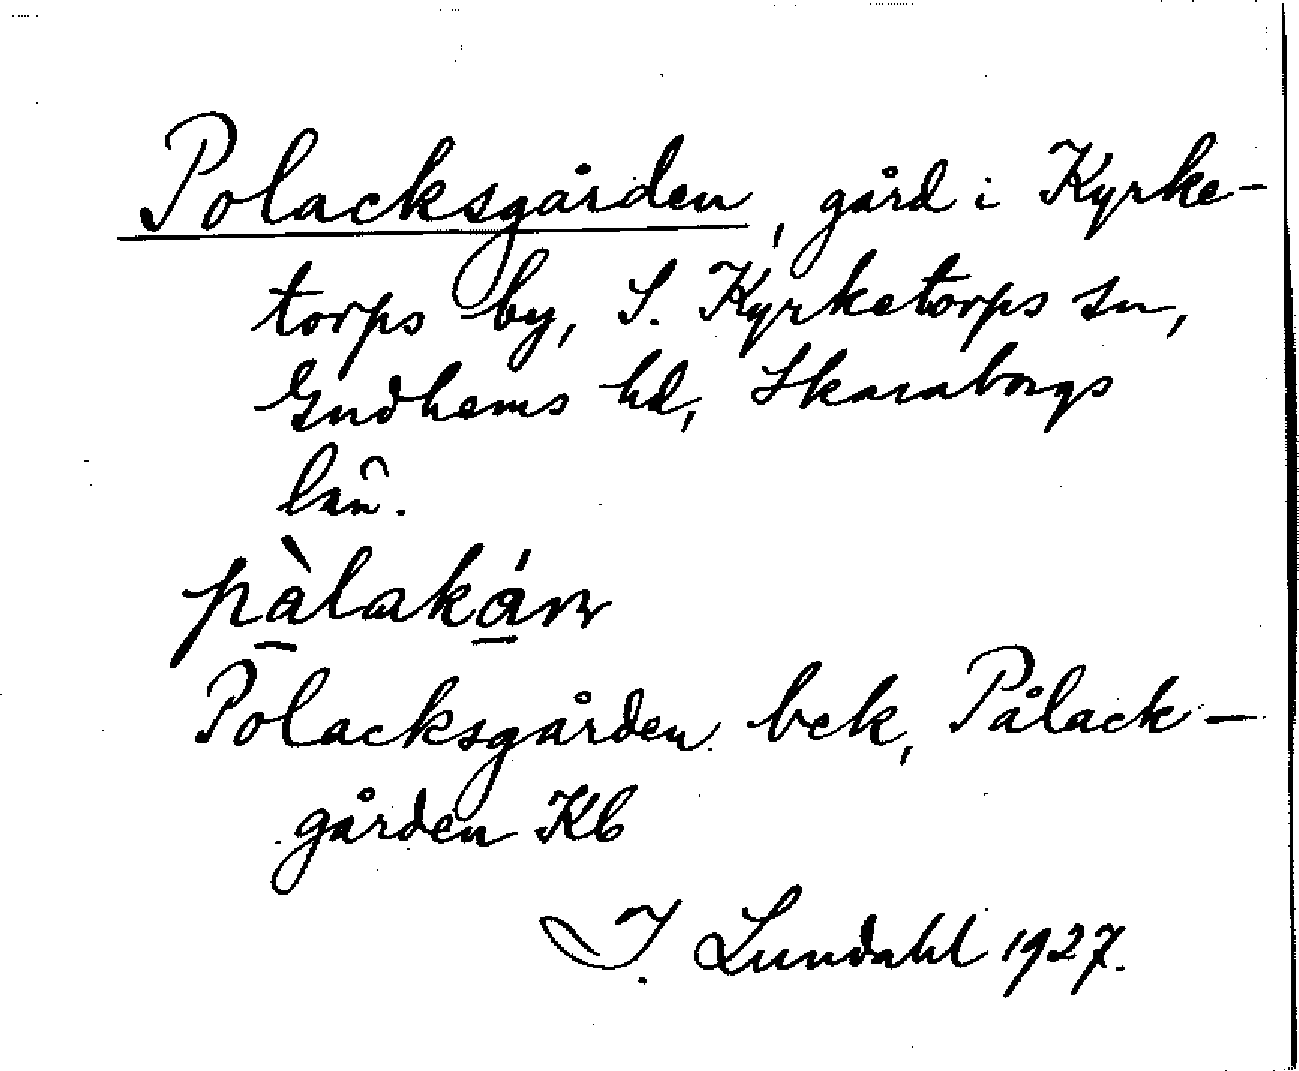 Polacksgården, gård i Kyrke-
torps by, S. Kyrketorps sn,
Gudhems hd, Skaraborgs
län.
pàlakán
Polacksgården bck, Pålack-
gården Kb
I. Lundahl 1927.